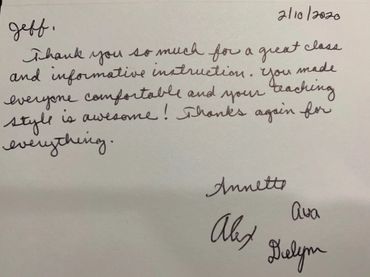 2/10/2020
Jeff,
Thank you so much for a great class
and informative instruction. You made
everyone comfortable and your teaching
style is awesome! Thanks again for
everything.
Annette
Ava
Alex